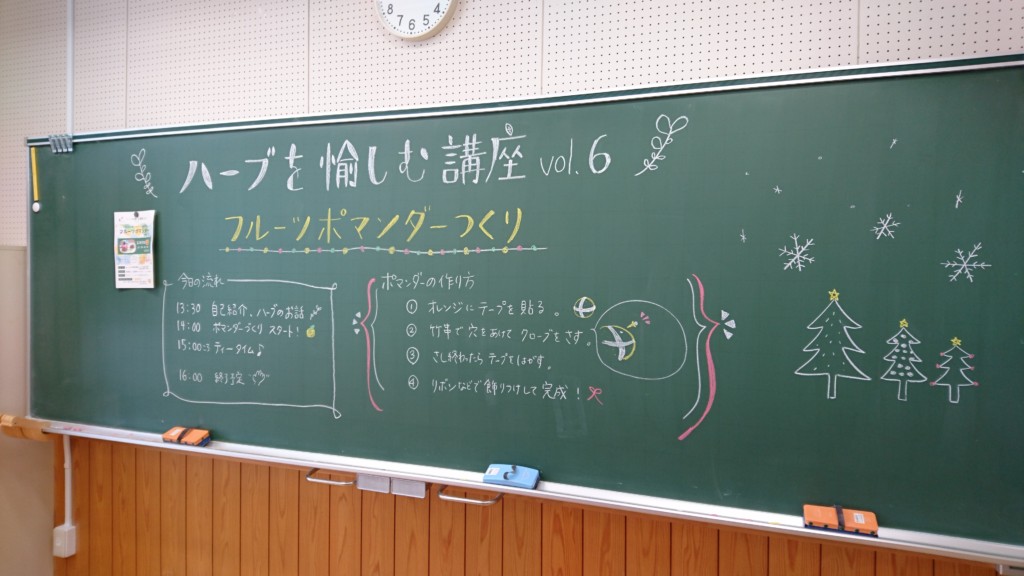 8 7 6 5 4
ハーブを愉しむ講座 vol.6
フルーツポマンダーつくり
今日の流れ
13:30 自己紹介、ハーブのお話
14:00 ポマンダーづくり スタート!
15:00ごろ ティータイム♪
16:00 終了予定
ポマンダーの作り方
① オレンジにテープを貼る。
② 竹串で穴をあけて クローブをさす。
③ さし終わったら テープをはがす。
④ リボンなどで飾りつけして完成!